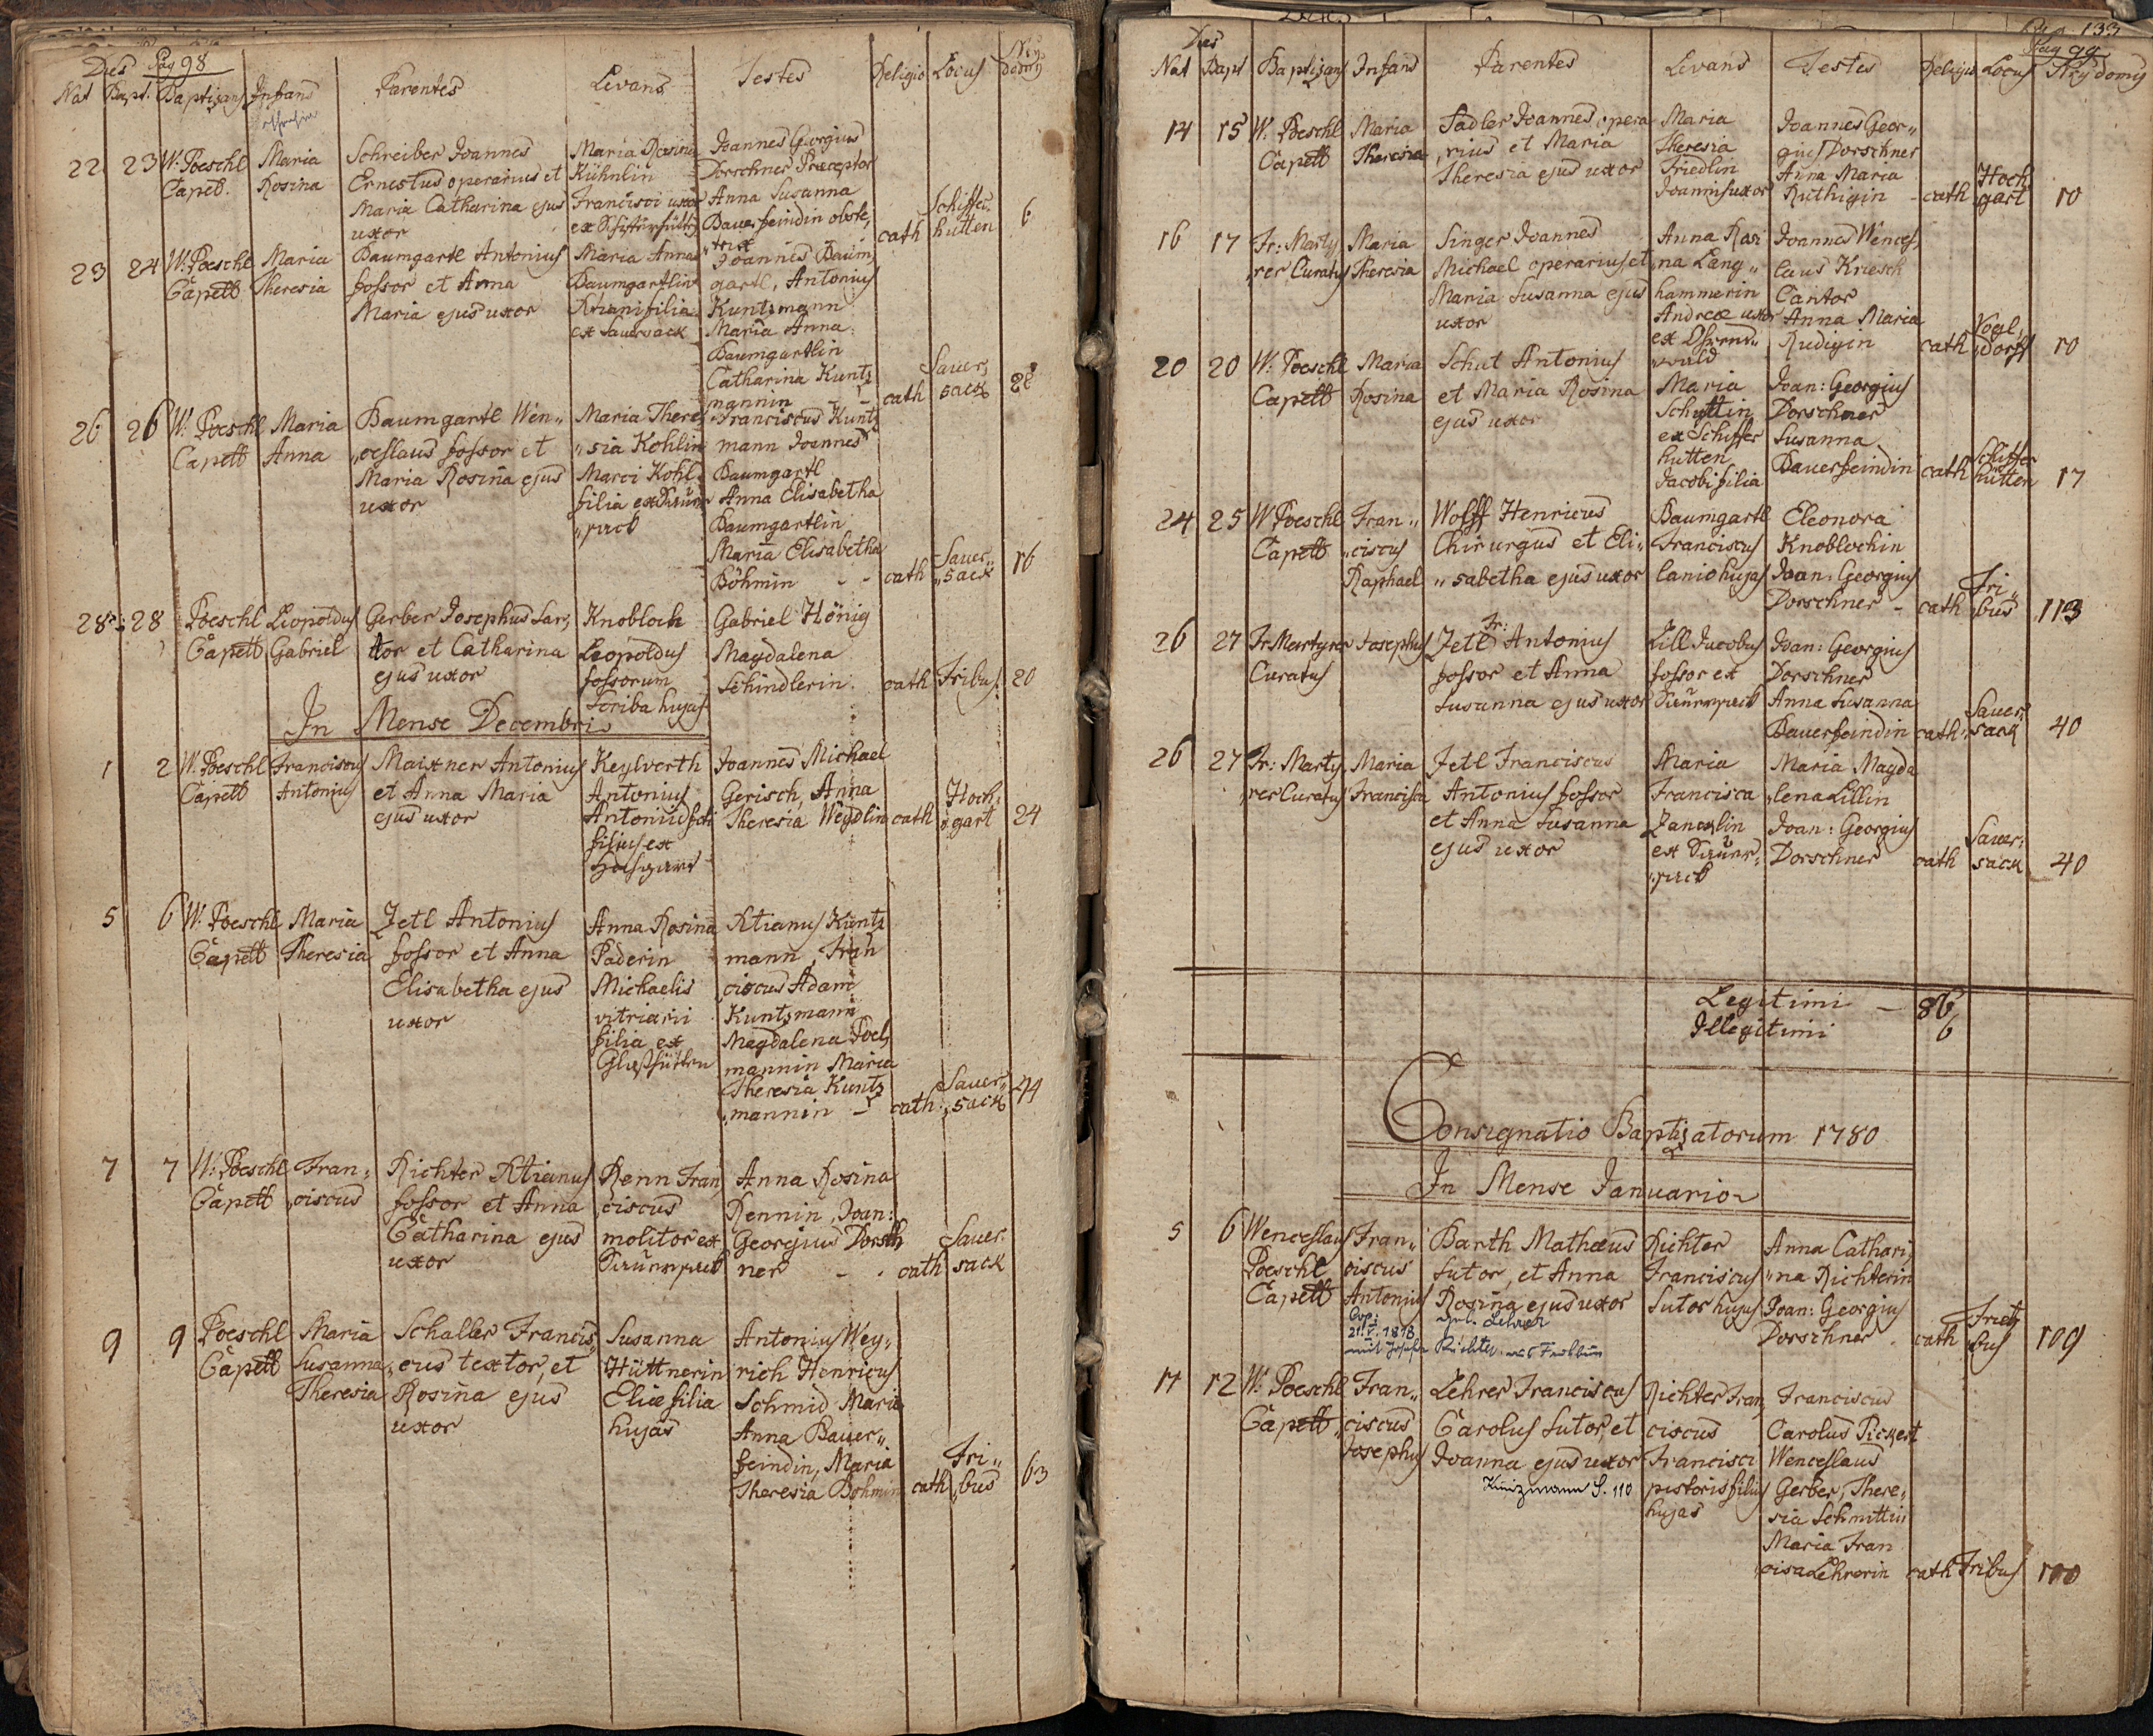 Pag 98
Dies
Nat Bapt. Baptizans Infans Parentes Levans Testes Religio Locus Nrus domus
22 23 W. Poeschl Capell. Maria Rosina
Schreiber Joannes
Ernestus operarius et
Maria Catharina ejus
uxor
Maria Rosina
Kühnlin
Francisci uxor
Joannes Georgius
Dorschner Praeceptor
Anna Susanna
Bauerfeindin obste,
trix
cath Schiffer,
hutten 6
23 24 W. Poeschl Capell Maria Theresia
Baumgartl Antonius
fossor et Anna
Maria ejus uxor
Maria Anna
Baumgartlin
Xtiani filia
ex Sauersack
Joannes Baum,
gartl, Antonius
Kuntzmann
Maria Anna
Baumgartlin
Catharina Kuntz
mannin
cath Sauer,
sack 28
26 26 W. Poeschl Capell Maria Anna
Baumgartl Wen„
„ceslaus fossor et
Maria Rosina ejus
uxor
Maria There,
„sia Kohlin
Marci Kohl
filia ex Sauer
„sack
Franciscus Kuntz
mann Joannes
Baumgartl
Anna Elisabetha
Baumgartlin
Maria Elisabetha
Böhmin
cath Sauer„
„sack 16
28 28 Poeschl Capell Leopoldus Gabriel
Gerber Josephus Sar,
tor et Catharina
ejus uxor
Knobloch
Leopoldus
fossorum
Scriba hujas
Gabriel Hönig
Magdalena
Schindlerin
cath Fribus 20
In Mense Decembri
1 2 W. Poeschl Capell Franciscus Antonius
Maixner Antonius
et Anna Maria
ejus uxor
Keylwerth
Antonius
filius ex
Joannes Michael
Gerisch, Anna
Theresia Weydlin
cath Hoch,
gart 24
5 6 W. Poeschl Capell Maria Theresia
Zetl Antonius
fossor et Anna
Elisabetha ejus
uxor
Anna Rosina
Paderin
Michaelis
vitriarii
filia ex
Glashütten
Xtianus Kuntz
mann, Fran
ciscus Adam
Kuntzmann
Magdalena Poel,
mannin Maria
Theresia Kuntz
„mannin
cath Sauer„
„sack 44
7 7 W. Poeschl Capell Fran,
ciscus
Richter Xtianus
fossor et Anna
Catharina ejus
uxor
Renn Fran,
ciscus
molitor ex
Sauersack
Anna Rosina
Rennin, Joan:
Georgius Dorsch
ner
cath Sauer,
sack
9 9 Poeschl Capell Maria
Susanna
Theresia
Schaller Francis„
„cus textor, et
Rosina ejus
uxor
Susanna
Hüttnerin
Eliae filia
hujas
Antonius Wey,
rich Henricus
Schmid Maria
Anna Bauer„
feindin, Maria
Theresia Böhmin
cath Fri„
„bus 63
Pag 99
Dies
Nat Bapt Baptizans Infans Parentes Levans Testes Religio Locus Nrus domus
14 15 W. Poeschl Capell Maria Theresia
Sadler Joannes opera
„rius et Maria
Theresia ejus uxor
Maria
Theresia
Friedlin
Joannis uxor
Joannes Geor„
gius Dorschner
Anna Maria
Ruthigin
cath Hoch
gart 10
16 17 Fr: Marty,
„rer Curatus Maria Theresia
Singer Joannes
Michael operarius et
Maria Susanna ejus
uxor
Anna Rosi
„na Lang„
hammerin
Andreae uxor
Joannes Wences,
laus Kriesch
Cantor
Anna Maria
Rudigin
cath Vogl,
dorff 10
20 20 W. Poeschl Capell Maria Rosina
Schut Antonius
et Maria Rosina
ejus uxor
Maria
Schuttin
ex Schiffer
hutten
Jacobi filia
Joan: Georgius
Dorschner
Susanna
Bauerfeindin
cath Schiffer
hütten 17
24 25 W Poeschl Capell Fran„
„ciscus
Raphael
Wolff Henricus
Chirurgus et Eli„
„sabetha ejus uxor
Baumgartl
Franciscus
lanio hujas
Eleonora
Knoblochin
Joan: Georgius
Dorschner
cath Fri„
bus 113
26 27 Fr. Martyrer Curatus Josephus
Fr:
Zetl Antonius
fossor et Anna
Susanna ejus uxor
Lill Jacobus
fossor ex
Sauersack
Joan: Georgius
Dorschner
Anna Susanna
Bauerfeindin
cath Sauer,
sack 40
26 27 Fr: Marty,
„rer Curatus Maria Francisca
Zetl Franciscus
Antonius fossor
et Anna Susanna
ejus uxor
Maria
Francisca
ex Sauer,
„sack
Maria Magda
„lena Lillin
Joan: Georgius
Dorschner
cath Sauer,
sack 40
Legitimi — 86
Illegitimi 6
Consignatio Baptizatorum 1780
In Mense Januario
5 6 Wenceslaus
Poeschl
Capell Fran„
ciscus
Antonius
Barth Mathaeus
Sutor, et Anna
Rosina ejus uxor
Richter
Franciscus
Sutor hujus
Anna Cathari,
„na Richterin
Joan: Georgius
Dorschner
cath Frie
bus 109
Cop:
21.V.1818
11 12 W. Poeschl Capell Fran„
„ciscus
Josephus
Lehrer Franciscus
Carolus Sutor, et
Joanna ejus uxor
Künzmann S. 110
Richter Fran,
ciscus
Francisci
pistoris filius
hujas
Franciscus
Carolus Pickert
Wenceslaus
Gerber, There,
sia Schmittin
Maria Fran
cisca Lehrerin
cath Fribus 100